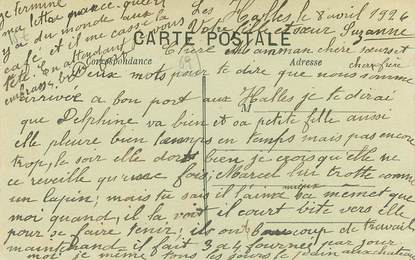 je termine
ma lettre
y a du monde au
café et il me casse la
tête en attendant
Les Halles, 8 avril 1926
Votre fille et sœur Suzanne
CARTE POSTALE
Correspondance
Adresse
Chère Maman chère sœur et
cher frère
Deux mots pour te dire que nous somme
arrivée a bon port aux Halles je te dirai
que Delphine va bien et sa petite fille aussi
elle pleure bien temps en temps mais pas encore
trop, le soir elle dort bien, je crois qu'elle ne
ce reveille qu'une fois, Marcel lui trotte comme
un lapin; mais tu sais il l'aime sa
moi quand, il la voit il court vite vers elle
pour se faire tenir; ils ont beaucoup de travail
maintenant il fait 3 a 4 fournés par jour
moi je mème tous les jours le pain aux